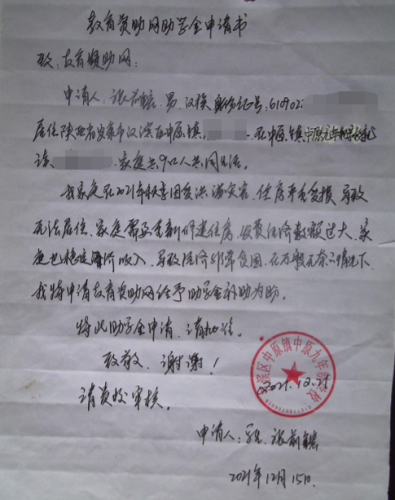 教育资助网助学金申请书
致：教育资助网：
申请人：张前 男 汉族 身份证号：610902
居住陕西省安康市汉滨区中原镇 在中原镇中原九年制学校
读 家庭共9口人共同生活。
我家庭在2021年 因受洪涝灾害，住房严重受损，导致
无法居住，家庭需要重新修建住房，经济数额过大，家
庭 经济收入，导致经济非常贫困，在万般无奈之情况下
我特申请教育资助网给予助学金补助为盼。
特此助学金申请，请批准。
致敬，谢谢！
请贵校审核。
汉滨区中原镇中原九年制学校
2021.12.21
申请人：张前
2021年12月15日